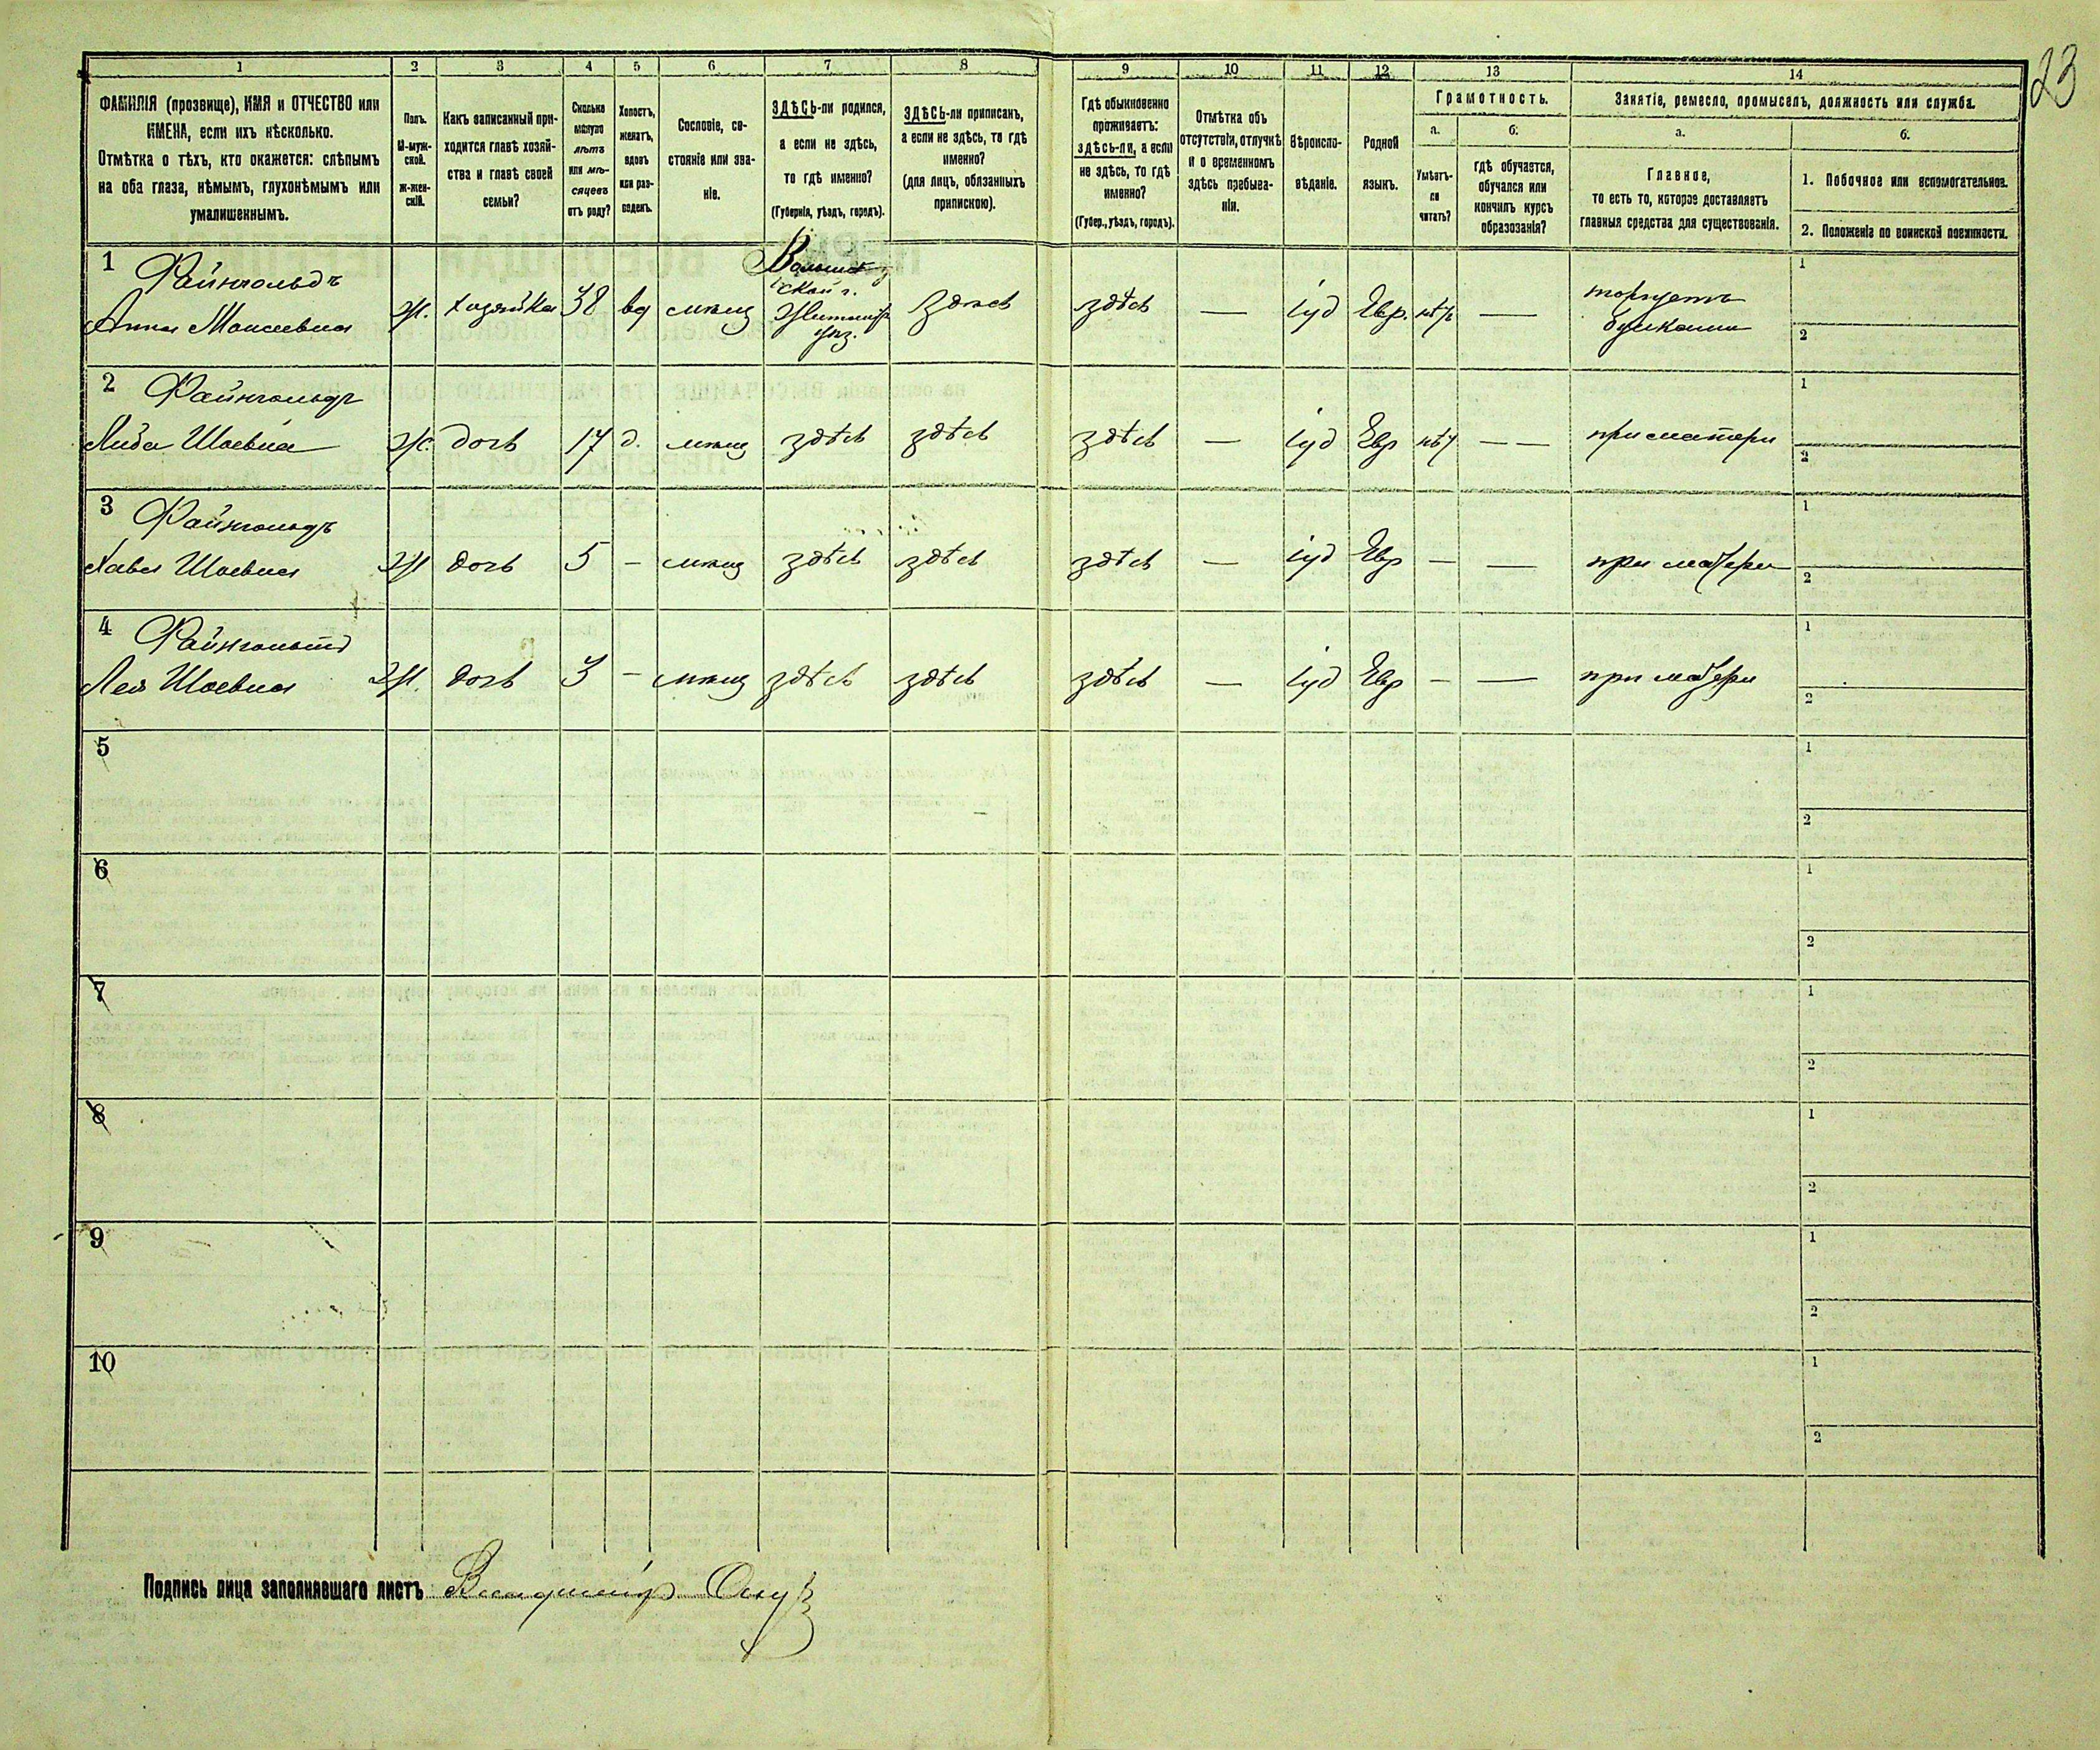 23
1 2 3 4 5 6 7 8 9 10 11 12 13 14
ФАМИЛІЯ (прозвище), ИМЯ и ОТЧЕСТВО или
ИМЕНА, если ихъ нѣсколько.
Отмѣтка о тѣхъ, кто окажется: слѣпымъ
на оба глаза, нѣмымъ, глухонѣмымъ или
умалишеннымъ.
Полъ.
М-муж-
ской.
ж-жен-
скій.
Какъ записанный при-
ходится главѣ хозяй-
ства и главѣ своей
семьи?
Сколько
минуло
лѣтъ
или мѣ-
сяцевъ
отъ роду?
Холостъ,
женатъ,
вдовъ
или раз-
веденъ.
Сословіе, со-
стояніе или зва-
ніе.
ЗДѢСЬ-ли родился,
а если не здѣсь,
то гдѣ именно?
(Губернія, уѣздъ, городъ).
ЗДѢСЬ-ли приписанъ,
а если не здѣсь, то гдѣ
именно?
(для лицъ, обязанныхъ
припискою).
Гдѣ обыкновенно
проживаетъ:
здѣсь-ли, а если
не здѣсь, то гдѣ
именно?
(Губер., уѣздъ, городъ).
Отмѣтка объ
отсутствіи, отлучкѣ
и о временномъ
здѣсь пребыва-
ніи.
Вѣроиспо-
вѣданіе.
Родной
языкъ.
Грамотность.
а.
Умѣетъ-
ли
читать?
б.
гдѣ обучается,
обучался или
кончилъ курсъ
образованія?
Занятіе, ремесло, промыселъ, должность или служба.
а.
Главное,
то есть то, которое доставляетъ
главныя средства для существованія.
б.
1. Побочное или вспомогательное.
2. Положеніе по воинской повинности.
1 Файнгольдъ
Анна Моисеевна Ж. хозяйка 38 вд мѣщ
Волын
ской г.
Житомір
уѣз.
здѣсь здѣсь — іуд Евр. нѣт —
торгуетъ
булками
1
2
2 Файнгольдъ
Либа Шаевна Ж. дочь 17 д. мѣщ здѣсь здѣсь здѣсь — іуд Евр нѣт — — при матери
1
2
3 Файнгольдъ
Хава Шаевна Ж дочь 5 — мѣщ здѣсь здѣсь здѣсь — іуд Евр — — при матери
1
2
4 Файнгольтд
Лея Шаевна Ж. дочь 3 — мѣщ здѣсь здѣсь здѣсь — іуд Евр — — при матери
1
2
5
1
2
6
1
2
7
1
2
8
1
2
9
1
2
10
1
2
Подпись лица заполнявшаго листъ